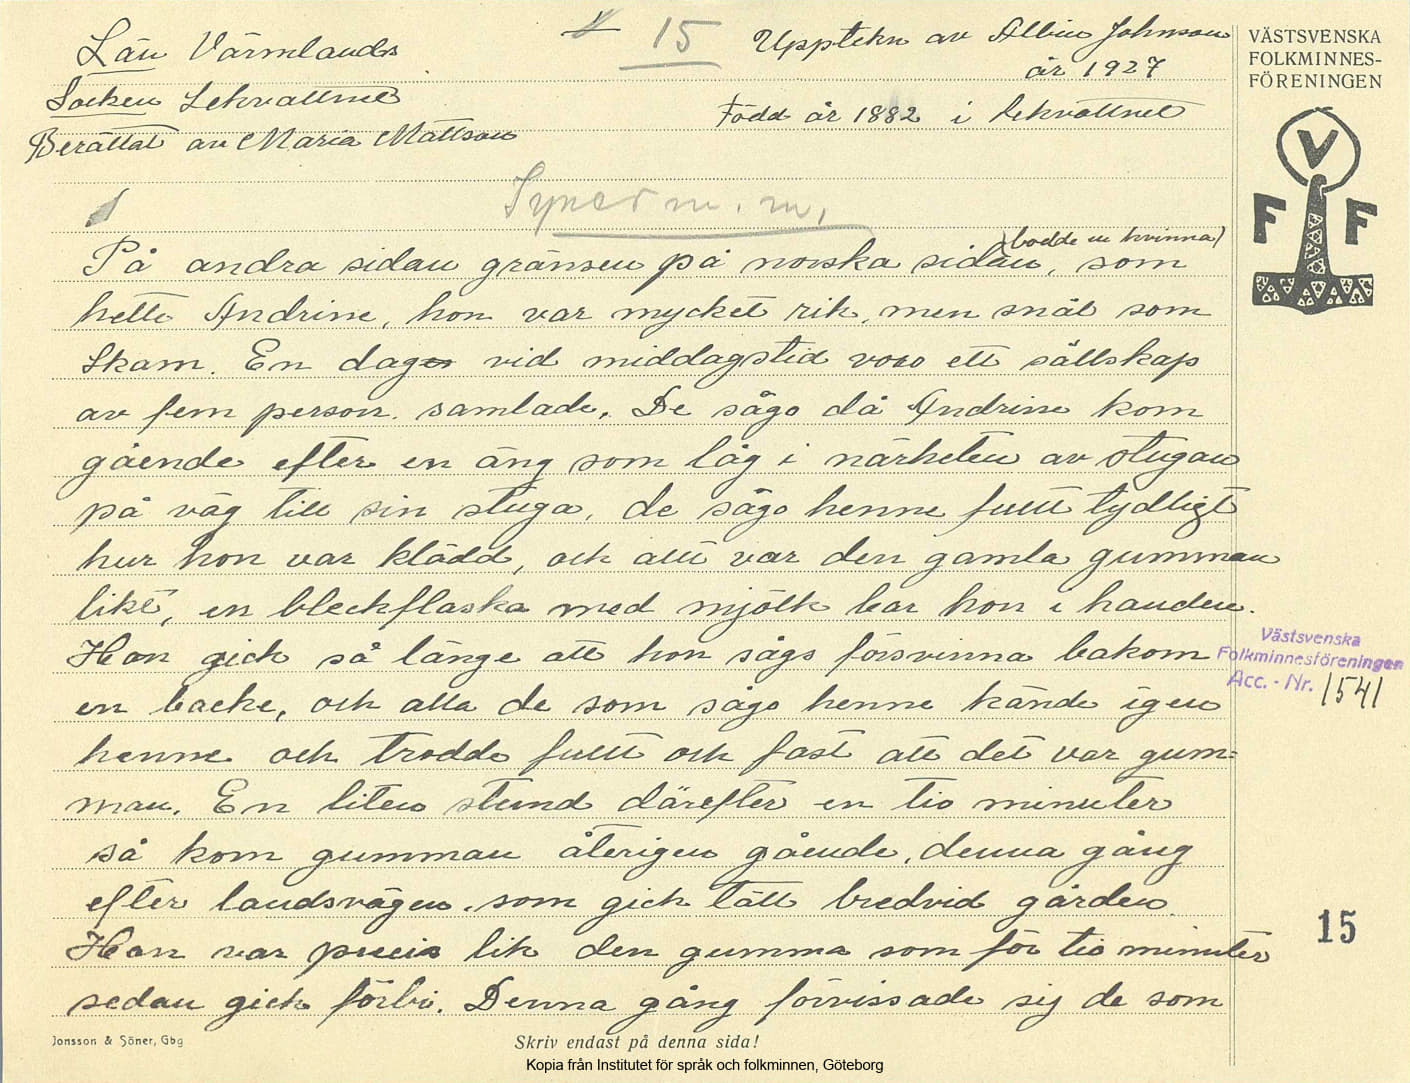 Län Värmlands
15
Upptekn av Albin Johnson
år 1927
Socken Lekvattnet
Född år 1882 i Lekvattnet
Berättat av Maria Mattson
Syner m. m.
På andra sidan gränsen på norska sidan, (bodde en kvinna) som
hette Andrine, hon var mycket rik, men snål som
skam. En dag vid middagstid voro ett sällskap
av fem person. samlade. De sågo då Andrine kom
gående efter en äng som låg i närheten av stugan
på väg till sin stuga, de sågo henne fullt tydligt
hur hon var klädd, och allt var den gamla gumman
likt, en bleckflaska med mjölk bar hon i handen.
Hon gick så länge att hon sågs försvinna bakom
en backe, och alla de som sågo henne kände igen
henne och trodde fullt och fast att det var gum=
man. En liten stund därefter en tio minuter
så kom gumman återigen gående, denna gång
efter landsvägen som gick tätt bredvid gården.
Hon var precis lik den gumma som för tio minuter
sedan gick förbi. Denna gång förvissade sig de som
VÄSTSVENSKA
FOLKMINNES-
FÖRENINGEN
V
F F
Västsvenska
Folkminnesföreningen
Acc. - Nr. 1541
15
Jonsson & Söner, Gbg
Skriv endast på denna sida!
Kopia från Institutet för språk och folkminnen, Göteborg